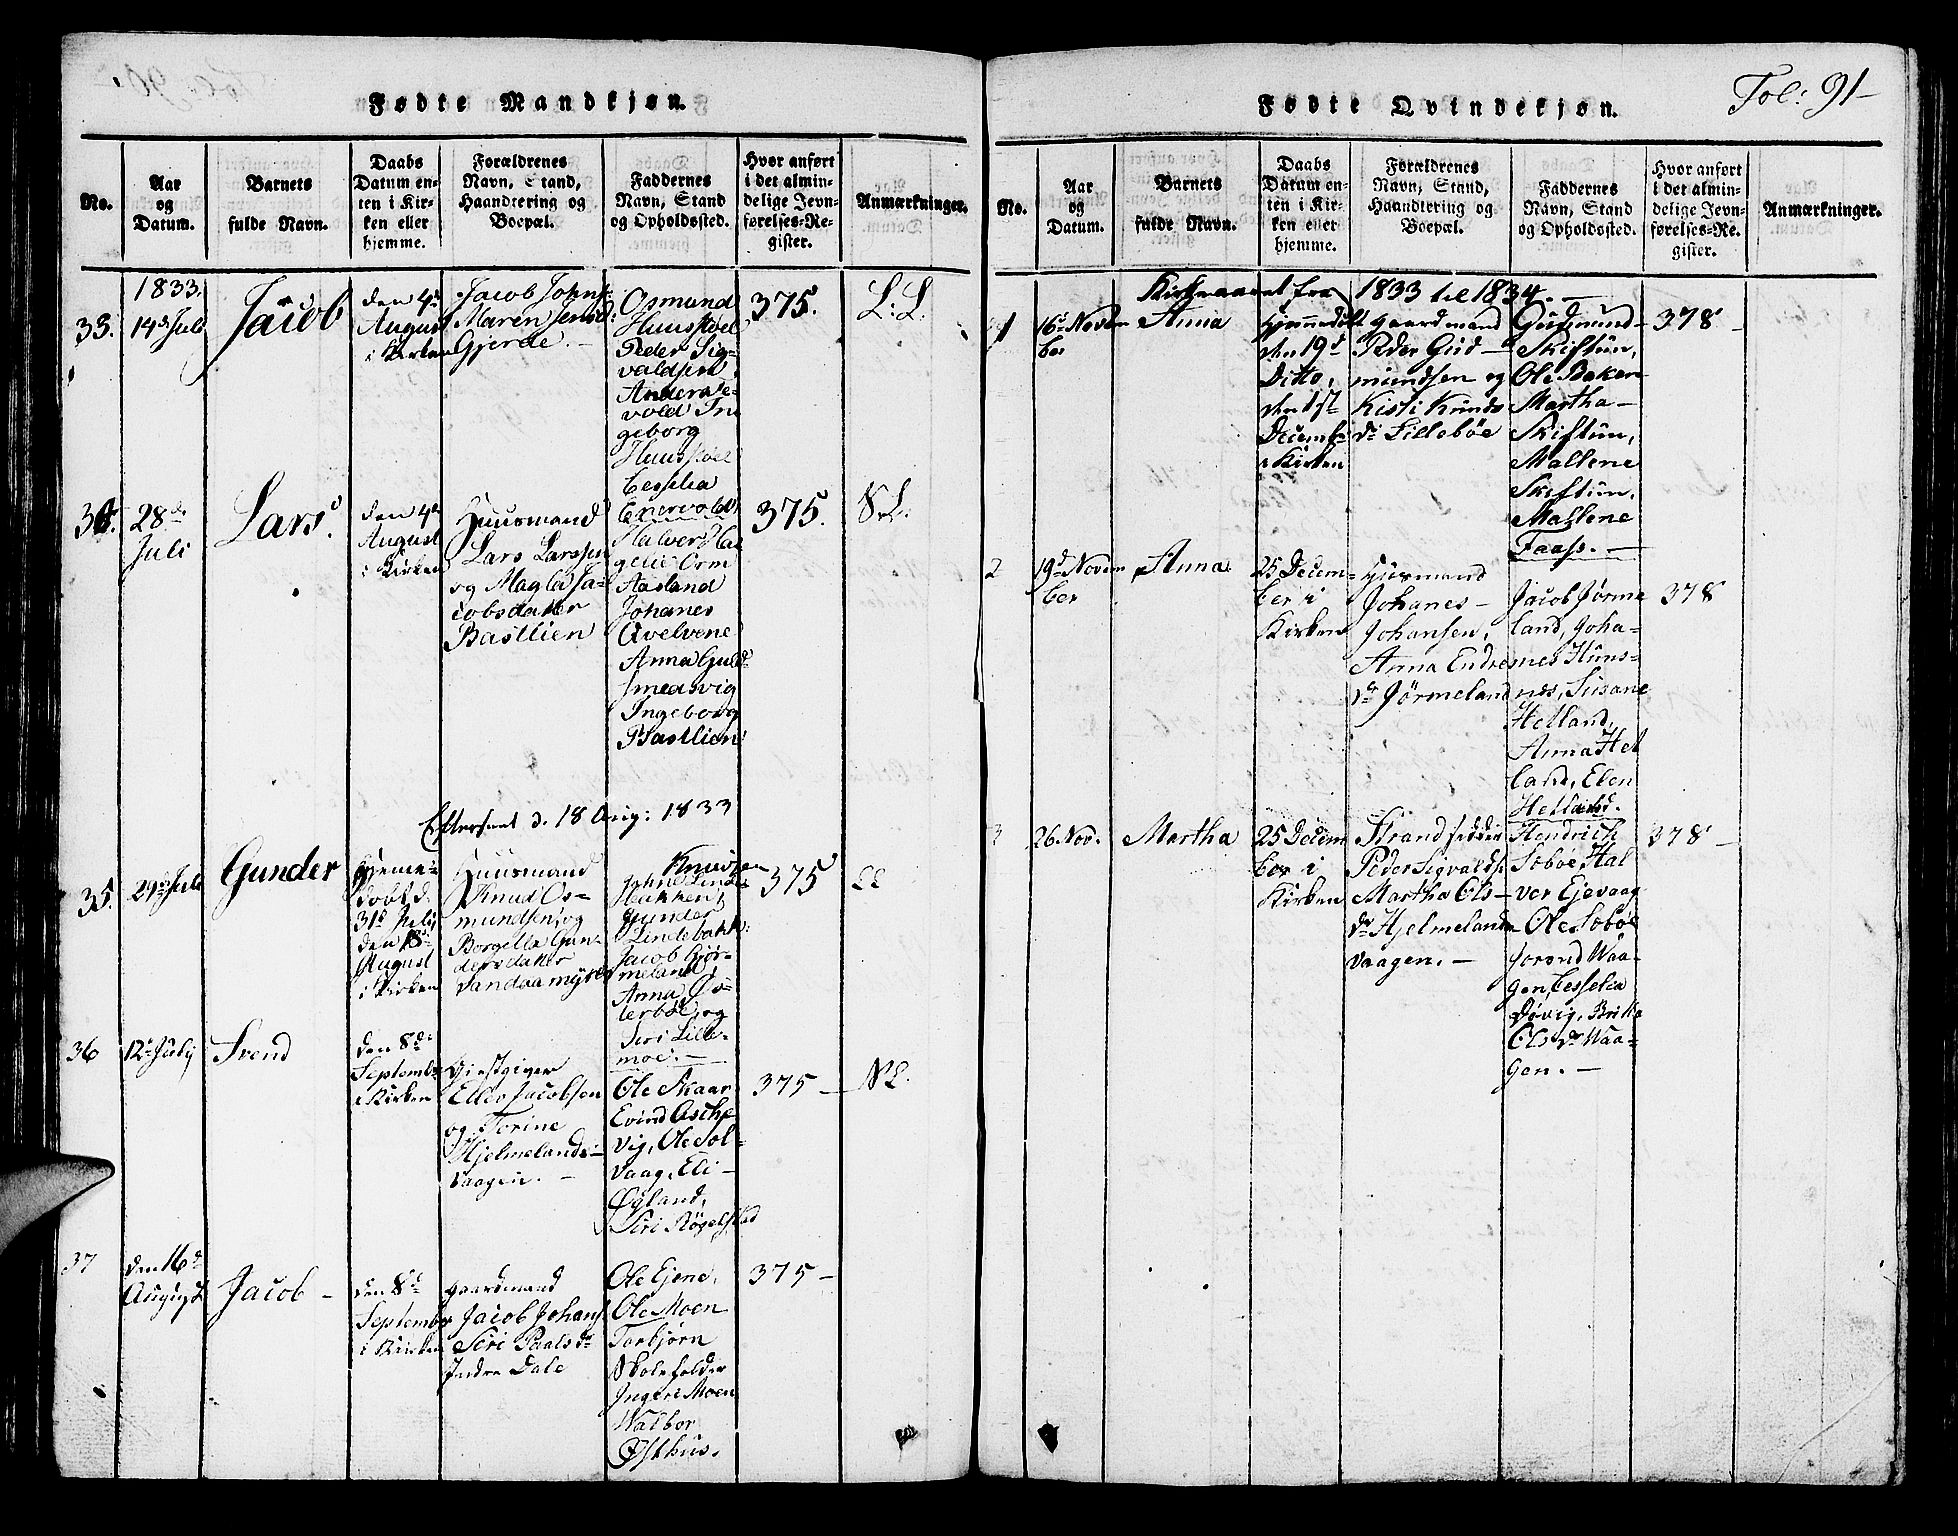 Fødte Mandkjøn.
No.
Aar
og
Datum.
Barnets
fulde Navn.
Daabs
Datum en-
ten i Kir-
ken eller
hjemme.
Forældrenes
Navn, Stand,
Haandtering og
Boepæl.
Faddernes
Navn, Stand
og Opholdssted.
Hvor anført
i det almin-
delige Jevn-
førelses-Re-
gister.
Anmærkninger.
33.
1833.
14d Juli
Jacob
den 4d
August
i Kirken
Jacob Johns
Maren Jensd:
Gjerde.
Osmund
Huusstøel
Peder Sig-
valdsen
Anders Je-
vold In
geborg
Huusstøel
Cesselia
Enervold
375.
L. L.
34.
28de
Juli
Lars
den 4d
August
i Kirken
Huusmand
Lars Larssen
og Magla Ja-
cobsdatter
Bastlien
Halver Ha
gelie Orm
Aasland
Johanes
Qvelvene
Anna Guld
smedsvig
Ingeborg
Bastlien
375.
N.L.
Efterseet d. 18 Aug: 1833
35.
29d Juli
Gunder
Hjeme-
døbt d.
31d Juli,
den 18de
August
i Kirken
Huusmand
Knud Os-
mundsen, og
Borgella Gun-
dersdatter
Sandaamyren
Knudsen
John Linde
Bakken,
Gunder
Lindebakk:
Jacob Gjør-
meland,
Anna Øs-
terbøe, og
Siri Lille-
moe.
375
LL
36
12d July
Svend
den 8de
Septemb
i Kirken
Giestgiver
Elles Jacobsen
og Torine
Hjelmelands-
vaagen.
Ole Skaar
Evind Aschs-
vig, Ole Sol-
vaag, Eli
Øyland,
Siri Røgelstad
375
NL.
37
den 16d
August
Jacob
den 8d
September
i Kirken
gaardmand
Jacob Johans
Siri Paalsdr
Indre Dale
Ole Ejene,
Ole Moen
Torbjørn
Skoleholder
Ingeri Moen
Walbor
Østhus.
375
Fødte Qvindekjøn.
Fol: 91
No.
Aar
og
Datum.
Barnets
fulde Navn.
Daabs
Datum en-
ten i Kir-
ken eller
hjemme.
Forældrenes
Navn, Stand,
Haandtering og
Boepæl.
Faddernes
Navn, Stand
og Opholdssted.
Hvor anført
i det almin-
delige Jevn-
førelses-Re-
gister.
Anmærkninger.
Kirkeaaret fra 1833 til 1834.
1
16d Novem
ber
Anna
Hjemmedøbt
den 19d
Ditto,
den 1st
Decemb
i Kirken
gaardmand
Peder Gud-
mundsen og
Kisti Knuds
dr Lillebøe
Gudmund
Skiftun,
Ole Bakken
Martha
Skiftun,
Mallene
Skiftun,
Mallene
Taass.
378
2
19d Novem
ber
Anna
25 Decem-
ber i
Kirken
Huusmand
Johanes
Johansen,
Anna Endre
dr Jørmeland
Jacob Jørme
land, Joha-
nes Huns-
nes, Susane
Hetland,
Anna Het
land, Elen
Hetland.
378
3
26 Nov.
Martha
25 Decem
ber i
Kirken
Strandsidder
Peder Sigvalds
Martha Ols
dr Hjelmelands
vaagen.
Hendrich
Sobøe Hal
ver Ejevaag
Ole Sobøe
Torond Waa-
gen, Cesselia
Døvig, Britta
Ols dr Waa-
gen.
378